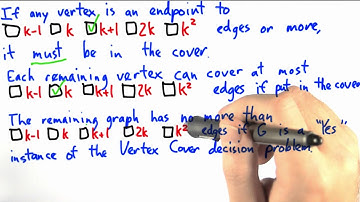 If any vertex is an endpoint to
k-1 k k+1 2k k² edges or more,
it must be in the cover.
Each remaining vertex can cover at most
k-1 k k+1 2k k² edges if put in the cover
The remaining graph has no more than
k-1 k k+1 2k k² edges if G is a "Yes"
instance of the Vertex Cover decision problem.